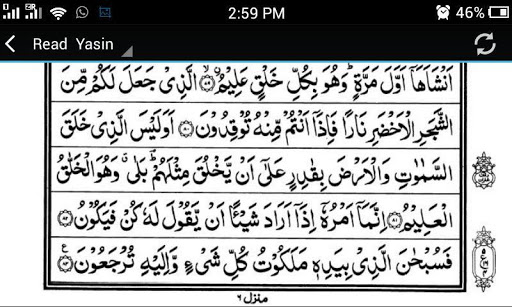 2:59 PM 46%
Read Yasin
اَنْشَاَهَاۤ اَوَّلَ مَرَّةٍ ؕ وَهُوَ بِكُلِّ خَلْقٍ عَلِيْمُ ۙ﴿۷۹﴾ الَّذِيْ جَعَلَ لَكُمْ مِّنَ
الشَّجَرِ الْاَخْضَرِ نَارًا فَاِذَاۤ اَنْتُمْ مِّنْهُ تُوْقِدُوْنَ ﴿۸۰﴾ اَوَلَيْسَ الَّذِيْ خَلَقَ
السَّمٰوٰتِ وَالْاَرْضَ بِقٰدِرٍ عَلٰۤى اَنْ يَّخْلُقَ مِثْلَهُمْ ؕ بَلٰى ۗ وَهُوَ الْخَلّٰقُ
الْعَلِيْمُ ﴿۸۱﴾ اِنَّمَاۤ اَمْرُهٗۤ اِذَاۤ اَرَادَ شَيْـًٔا اَنْ يَّقُوْلَ لَهٗ كُنْ فَيَكُوْنُ ﴿۸۲﴾
فَسُبْحٰنَ الَّذِيْ بِيَدِهٖ مَلَكُوْتُ كُلِّ شَيْءٍ وَّاِلَيْهِ تُرْجَعُوْنَ ﴿۸۳﴾
منزل ۶